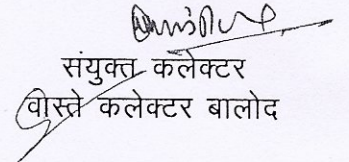 संयुक्त कलेक्टर
वास्ते कलेक्टर बालोद